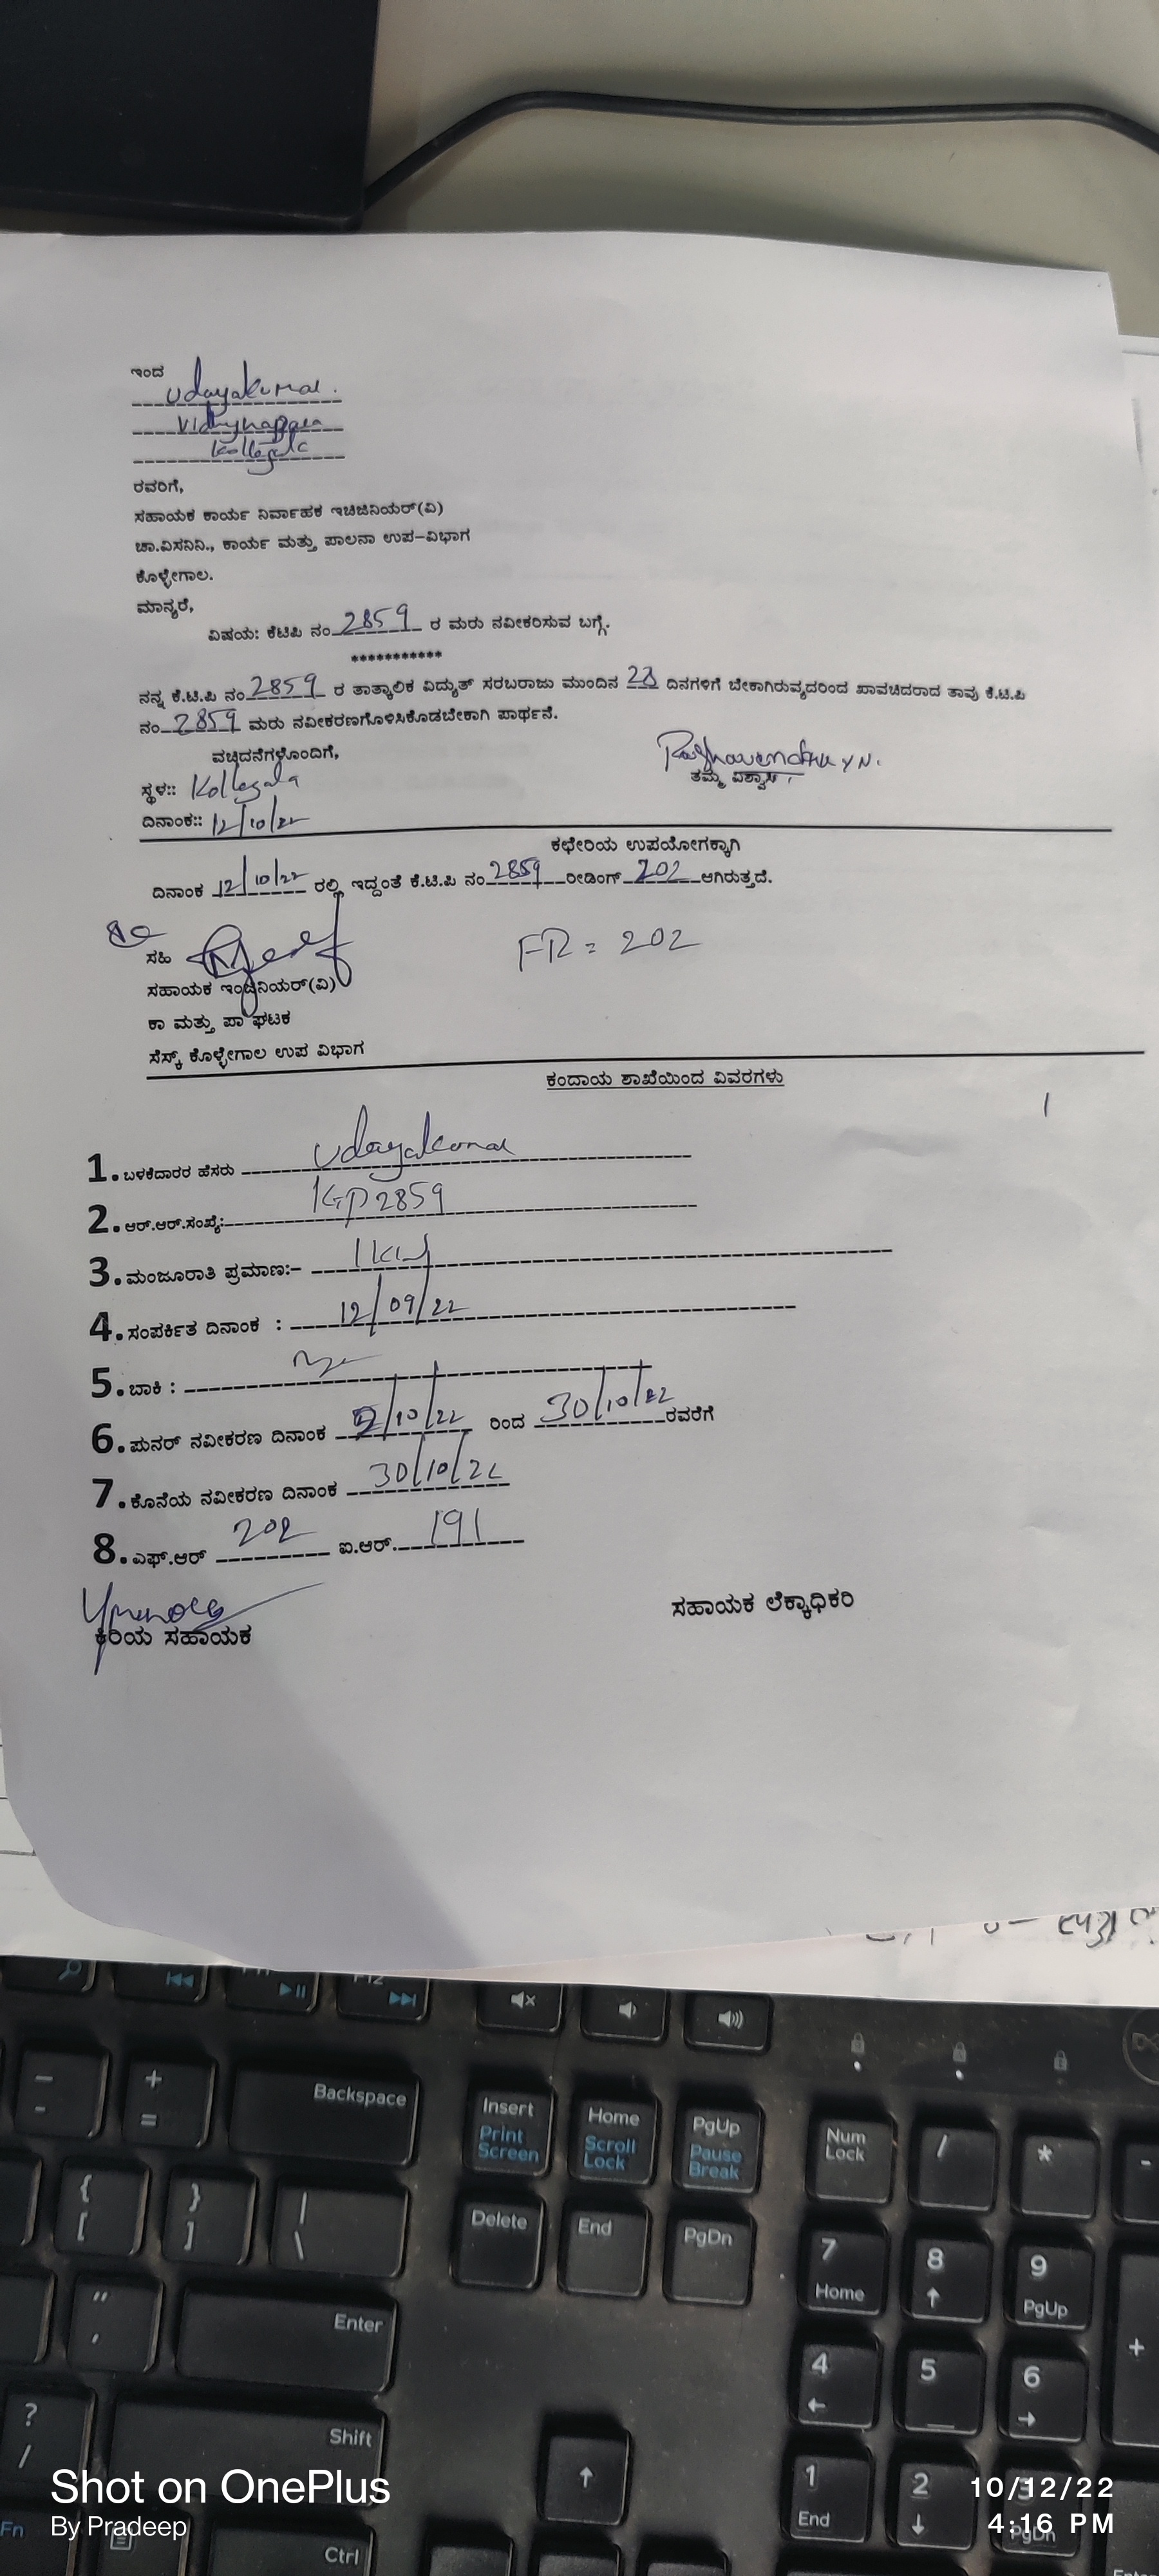 ಇಂದ
Udayakumar.
Kollegala
ರವರಿಗೆ,
ಸಹಾಯಕ ಕಾರ್ಯ ನಿರ್ವಾಹಕ ಇಚಿಜಿನಿಯರ್(ವಿ)
ಚಾ.ವಿಸನಿನಿ., ಕಾರ್ಯ ಮತ್ತು ಪಾಲನಾ ಉಪ-ವಿಭಾಗ
ಕೊಳ್ಳೇಗಾಲ.
ಮಾನ್ಯರೆ,
ವಿಷಯ: ಕೆಟಿಪಿ ನಂ 2859 ರ ಮರು ನವೀಕರಿಸುವ ಬಗ್ಗೆ.
***********
ನನ್ನ ಕೆ.ಟಿ.ಪಿ ನಂ 2859 ರ ತಾತ್ಕಾಲಿಕ ವಿದ್ಯುತ್ ಸರಬರಾಜು ಮುಂದಿನ ದಿನಗಳಿಗೆ ಬೇಕಾಗಿರುವ್ಯದರಿಂದ ಖಾವಚಿದರಾದ ತಾವು ಕೆ.ಟಿ.ಪಿ
ನಂ 2859 ಮರು ನವೀಕರಣಗೊಳಿಸಿಕೊಡಬೇಕಾಗಿ ಪಾರ್ಥನೆ.
ವಚ್ಚಿದನೆಗಳೊಂದಿಗೆ,
ತಮ್ಮ ವಿಶ್ವಾಸಿ,
ಸ್ಥಳ:: Kollegala
ದಿನಾಂಕ:: 12/10/22
ಕಛೇರಿಯ ಉಪಯೋಗಕ್ಕಾಗಿ
ದಿನಾಂಕ 12/10/22 ರಲ್ಲಿ ಇದ್ದಂತೆ ಕೆ.ಟಿ.ಪಿ ನಂ 2859 ರೀಡಿಂಗ್ 202 ಆಗಿರುತ್ತದೆ.
ಸಹಿ
FR = 202
ಸಹಾಯಕ ಇಂಜಿನಿಯರ್(ವಿ)
ಕಾ ಮತ್ತು ಪಾ ಘಟಕ
ಸೆಸ್ಕ್ ಕೊಳ್ಳೇಗಾಲ ಉಪ ವಿಭಾಗ
ಕಂದಾಯ ಶಾಖೆಯಿಂದ ವಿವರಗಳು
1. ಬಳಕೆದಾರರ ಹೆಸರು Udayakumar
2. ಆರ್.ಆರ್.ಸಂಖ್ಯೆ: KTP2859
3. ಮಂಜೂರಾತಿ ಪ್ರಮಾಣ:- 1kw
4. ಸಂಪರ್ಕಿತ ದಿನಾಂಕ : 12/09/22
5. ಬಾಕಿ :
6. ಪುನರ್ ನವೀಕರಣ ದಿನಾಂಕ /10/22 ರಿಂದ 30/10/22 ರವರೆಗೆ
7. ಕೊನೆಯ ನವೀಕರಣ ದಿನಾಂಕ 30/10/22
8. ಎಫ್.ಆರ್ 202 ಐ.ಆರ್. 191
ಕಿರಿಯ ಸಹಾಯಕ
ಸಹಾಯಕ ಲೆಕ್ಕಾಧಿಕರಿ
F12
- + Backspace Insert Home PgUp Num Lock / * -
= Print Screen Scroll Lock Pause Break
{ [ } ] | \ Delete End PgDn 7 Home 8 9 PgUp
" ' Enter 4 5 6 +
? / Shift 1 End 2 3 PgDn
Fn Ctrl
Shot on OnePlus
By Pradeep
10/12/22
4:16 PM